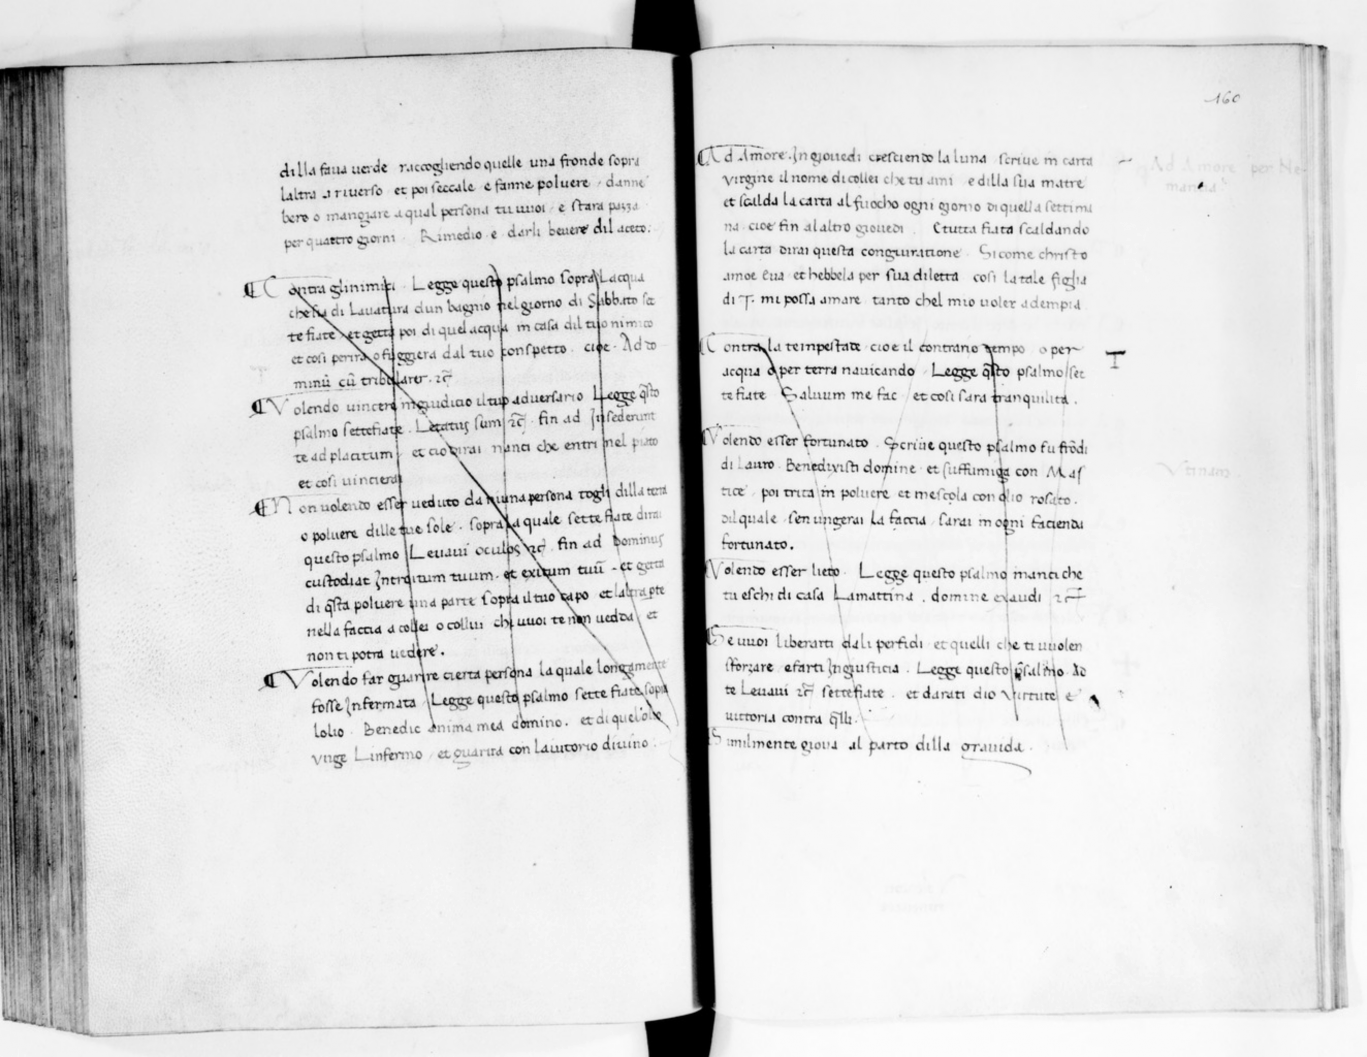 dilla faua uerde raccogliendo quelle una fronde sopra
laltra a riuerso et poi seccale e fanne poluere danne
bere o mangiare a qual persona tu uuoi e stara pazza
per quattro giorni. Rimedio e darli beuere dil aceto.
Contra gli nimici. Legge questo psalmo sopra Lacqua
che sia di Lauatura dun bagnio nel giorno di Sabbato set
te fiate et getta poi di quel acqua in casa dil tuo nimico
et cosi perira o fuggiera dal tuo conspetto. cioe. Ad do
minū cū tribularer. ⁊c̄
Volendo uincere in giudicio il tuo aduersario Legge q̄sto
psalmo settefiate. Letatus sum ⁊c̄. fin ad Insederunt
te ad placitum et cio dirai nanci che entri nel piato
et cosi uincierai
Non uolendo esser ueduto da niuna persona togli dilla terra
o poluere dille tue sole. sopra la quale sette fiate dirai
questo psalmo Leuaui oculos ⁊c̄. fin ad Dominus
custodiat Introitum tuum. et exitum tuū. et getta
di q̄sta poluere una parte sopra il tuo capo et laltra pte
nella faccia a collei o collui chi uuoi te non uedda et
non ti potra uedere.
Volendo far guarire cierta persona la quale longamente
fosse Infermata Legge questo psalmo sette fiate sopra
lolio. Benedic anima mea domino. et di quel olio
unge Linfermo et guarira con laiutorio diuino.
160
Ad Amore. In giouedi cresciendo la luna scriue in carta
uirgine il nome di collei che tu ami e dilla sua matre
et scalda la carta al fuocho ogni giorno di quella settima
na cioe fin al altro giouedi. Et tutta fiata scaldando
la carta dirai questa congiuratione Si come christo
amoe Eua et hebbela per sua diletta cosi la tale figlia
di T. mi possa amare tanto chel mio uoler adempia
Ad Amore per Ne-
Contra la tempestate cioe il contrario tempo o per
acqua o per terra nauicando. Legge q̄sto psalmo set
te fiate Saluum me fac et cosi sara tranquilita.
T
Volendo esser fortunato. Scriue questo psalmo fu frōdi
di Lauro. Benedixisti domine et suffumiga con Mas
tice poi trita in poluere et mescola con olio rosato.
dil quale sen ungerai la faccia sarai in ogni facienda
fortunato.
Vtinam
Volendo esser lieto. Legge questo psalmo inanti che
tu eschi di casa Lamattina. domine exaudi ⁊c̄
Se uuoi liberarti dali perfidi et quelli che ti uuolen
sforzare e farti Ingiusticia. Legge questo psalmo. Ad
te Leuaui ⁊c̄ settefiate. et darati dio uirtute e
uittoria contra q̄lli.
Similmente gioua al parto dilla grauida.